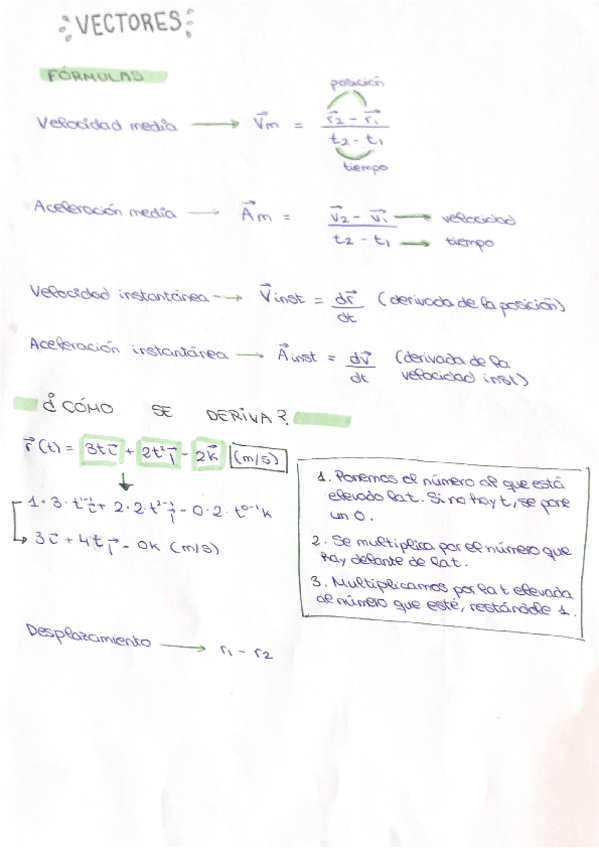 VECTORES
FÓRMULAS
posición
Velocidad media → V⃗m = (r⃗2 - r⃗1) / (t2 - t1)
tiempo
Aceleración media → A⃗m = (v⃗2 - v⃗1) / (t2 - t1) → velocidad → tiempo
Velocidad instantánea → V⃗inst = dr⃗/dt (derivada de la posición)
Aceleración instantánea → A⃗inst = dv⃗/dt (derivada de la velocidad inst)
¿CÓMO SE DERIVA?
r⃗(t) = 3t i⃗ + 2t² j⃗ - 2k⃗ (m/s)
1·3·t¹⁻¹ i⃗ + 2·2·t²⁻¹ j⃗ - 0·2·t⁰⁻¹ k
→ 3i⃗ + 4t j⃗ - 0k (m/s)
1. Ponemos el número al que está
elevado la t. Si no hay t, se pone
un 0.
2. Se multiplica por el número que
hay delante de la t.
3. Multiplicamos por la t elevada
al número que esté, restándole 1.
Desplazamiento → r1 - r2